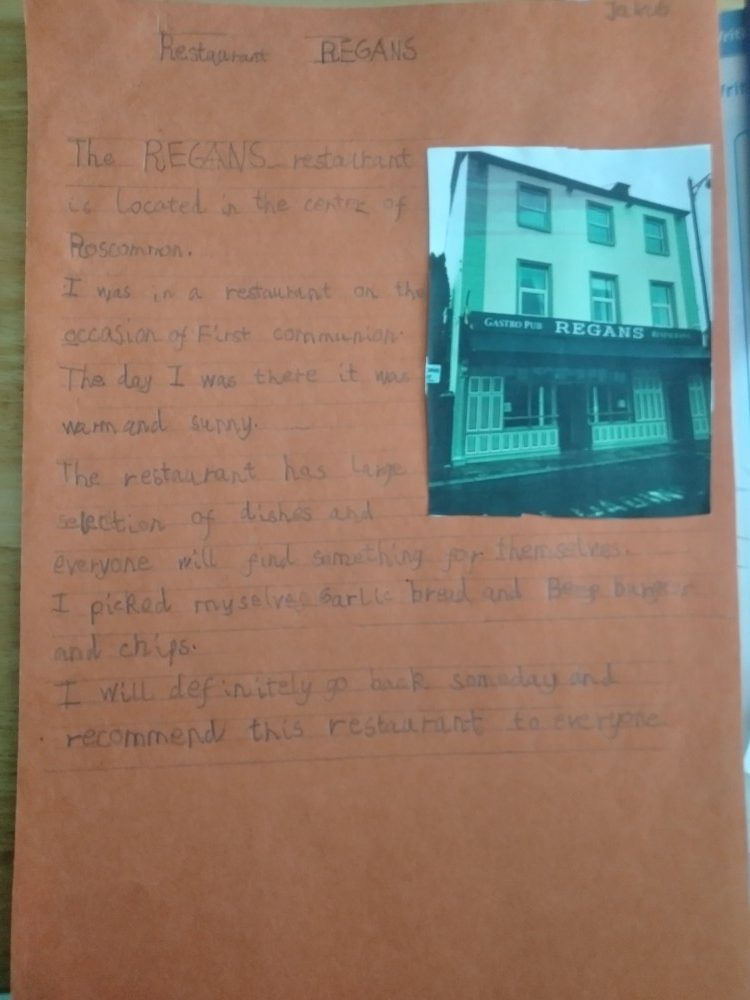 Jakub
Restaurant REGANS
The REGANS restaurant
is Located in the centre of
Roscommon.
I was in a restaurant on the
occasion of First communion.
The day I was there it was
warm and sunny.
The restaurant has large
selection of dishes and
everyone will find something for themselves.
I picked myselves Garlic bread and Beef burger
and chips.
I will definitely go back someday and
recommend this restaurant to everyone
GASTRO PUB REGANS RESTAURANT